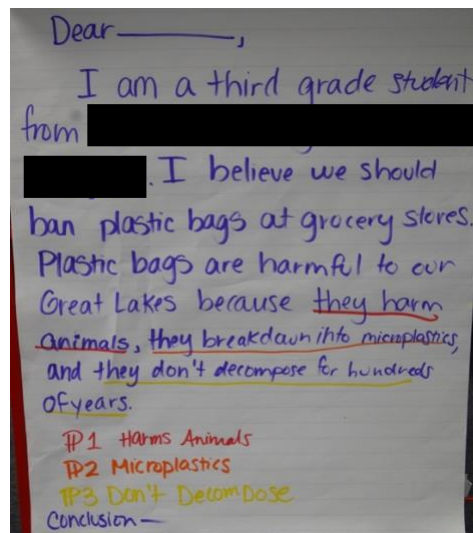 Dear ________,
I am a third grade student
from
. I believe we should
ban plastic bags at grocery stores.
Plastic bags are harmful to our
Great Lakes because they harm
animals, they breakdown into microplastics,
and they don't decompose for hundreds
of years.
P1 Harms Animals
P2 Microplastics
P3 Don't Decompose
Conclusion—